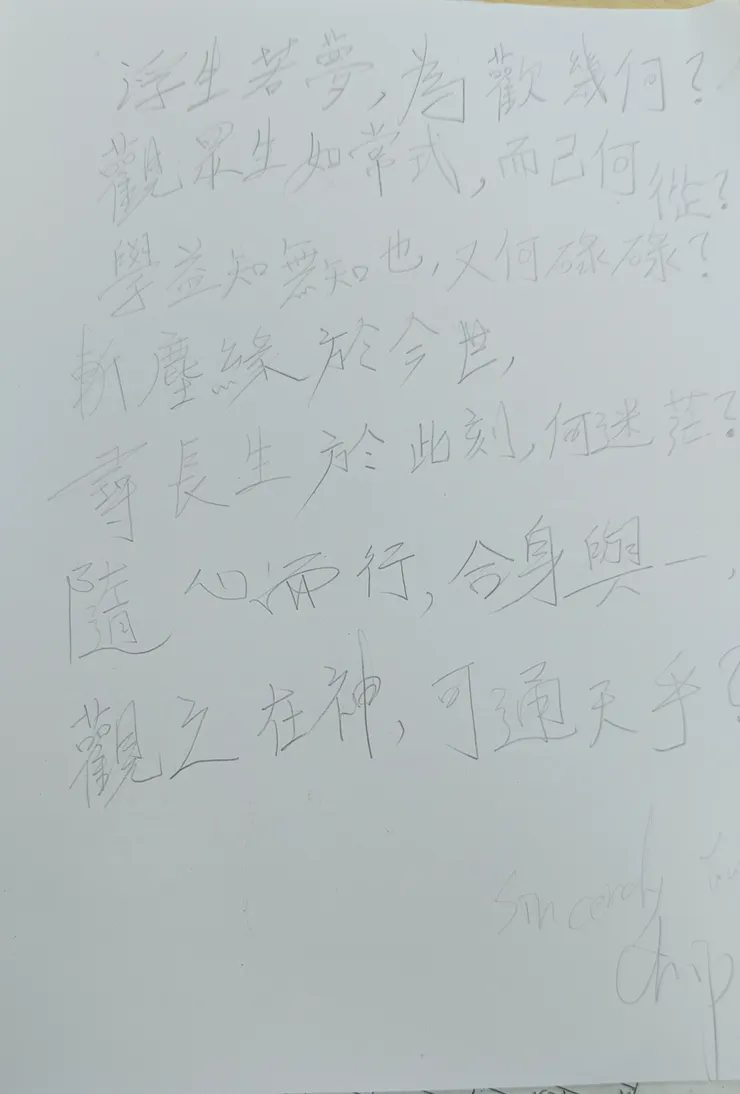 浮生若夢，為歡幾何？
觀眾生如常式，而己何從？
學益知無知也，又何碌碌？
斬塵緣於今世，
尋長生於此刻，何迷茫？
隨心而行，合身與一，
觀之在神，可通天乎？
Sincerely